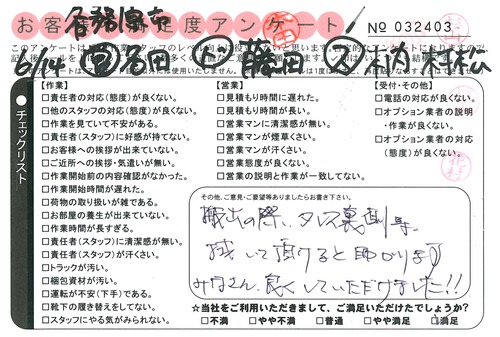 お客様満足度アンケート
No 032403
6/14
【作業】
□責任者の対応(態度)が良くない。
□他のスタッフの対応(態度)が良くない。
□作業を見ていて不安がある。
□責任者(スタッフ)に好感が持てない。
□お客様への挨拶が出来ていない。
□ご近所への挨拶・気遣いが無い。
□作業開始前の内容確認がなかった。
□作業開始時間が遅れた。
□荷物の取り扱いが雑である。
□お部屋の養生が出来ていない。
□作業時間が長すぎる。
□責任者(スタッフ)に清潔感が無い。
□責任者(スタッフ)が汗くさい。
□トラックが汚い。
□梱包資材が汚い。
□運転が不安(下手)である。
□靴下の履き替えをしてない。
□スタッフにやる気がみられない。
【営業】
□見積もり時間に遅れた。
□見積もり時間が長い。
□営業マンに清潔感が無い。
□営業マンが煙草くさい。
□営業マンが汗くさい。
□営業態度が良くない。
□営業の説明と作業が一致してない。
【受付・その他】
□電話の対応が良くない。
□オプション業者の説明
・作業が良くない。
□オプション業者の対応
(態度)が良くない。
チェックリスト
その他、ご意見・ご要望等ありましたらお書き下さい。
搬出の際、タンス裏側等、
残して頂けると助かります
みなさん、良くしていただけました!!
☆当社をご利用いただきまして、ご満足いただけたでしょうか?
□不満 □やや不満 □普通 □やや満足 □満足